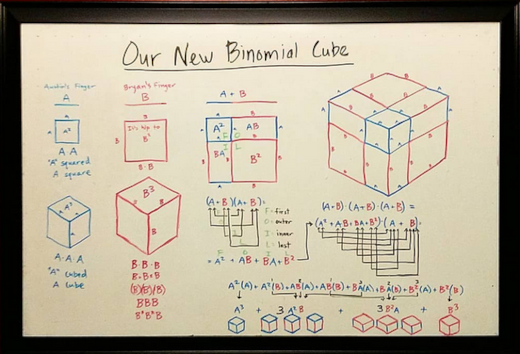 Our New Binomial Cube
Austin's Finger
A
A²
A·A
"A" squared
A square
A³
A·A·A
"A" cubed
A cube
Bryan's Finger
B
It's hip to
B²
B·B
B³
B
B·B·B
(B)(B)(B)
BBB
B*B*B
A + B
A²
AB
BA
B²
F
O
I
L
(A+B)(A+B)=
F - first
O - outer
I - inner
L - last
F O I L
= A² + AB + BA + B²
(A+B)·(A+B)·(A+B) =
(A² + AB + BA + B²)·(A + B)=
A³ + 3 A²B + 3 B²A + B³